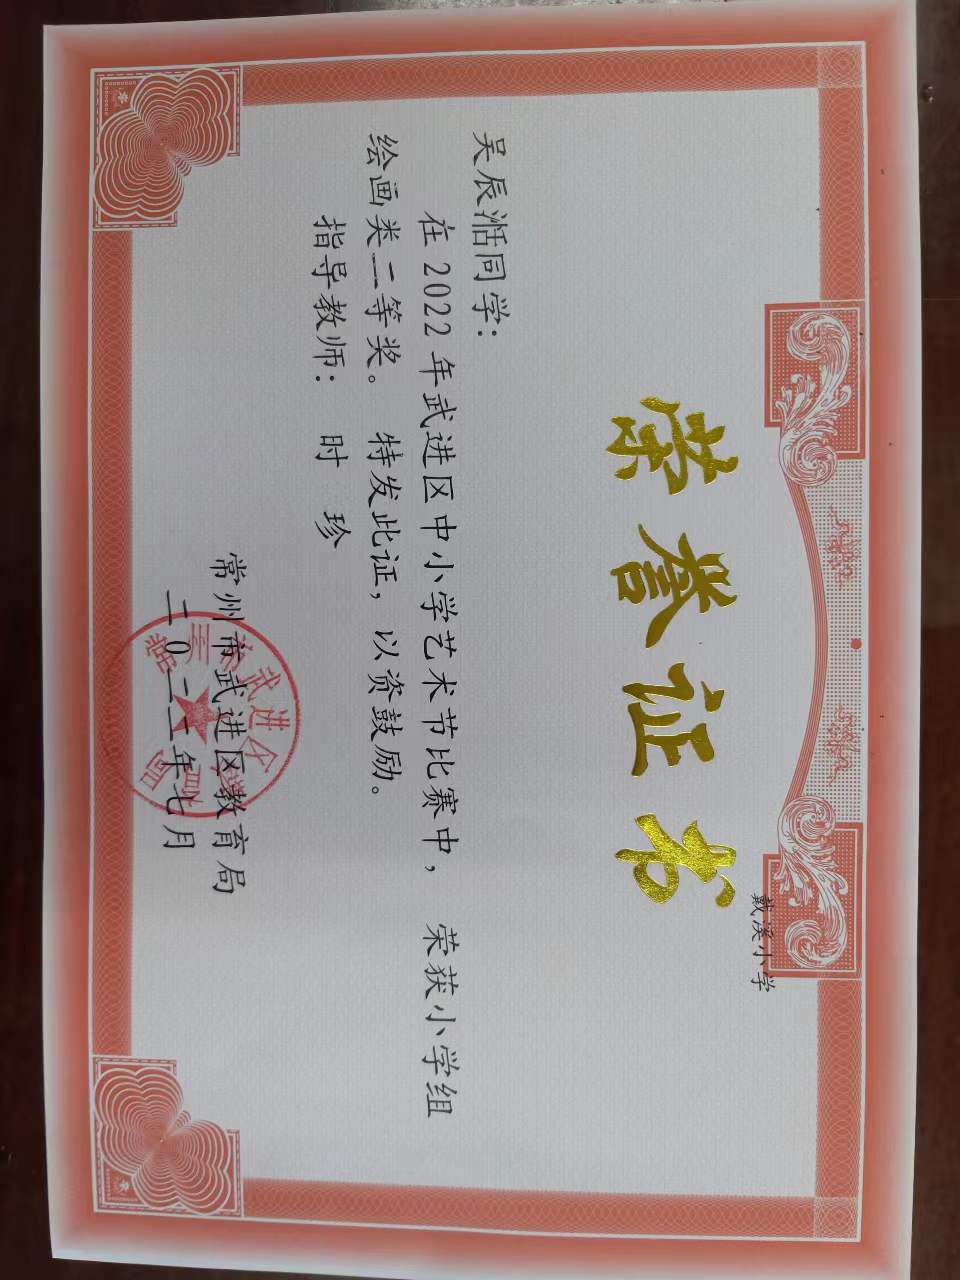 戴溪小学
荣誉证书
吴辰湉同学：
在2022年武进区中小学艺术节比赛中，荣获小学组
绘画类二等奖。特发此证，以资鼓励。
指导教师：时 珍
常州市武进区教育局
二0二二年七月